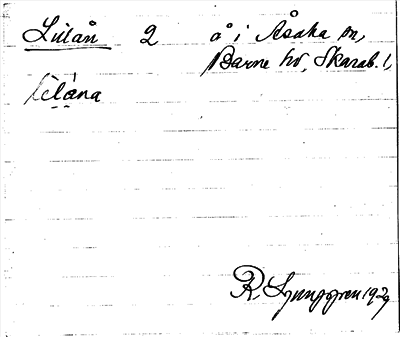 Lillån 2 å i Åsaka sn,
Barne hd, Skarab. l,
R. Ljunggren 1929